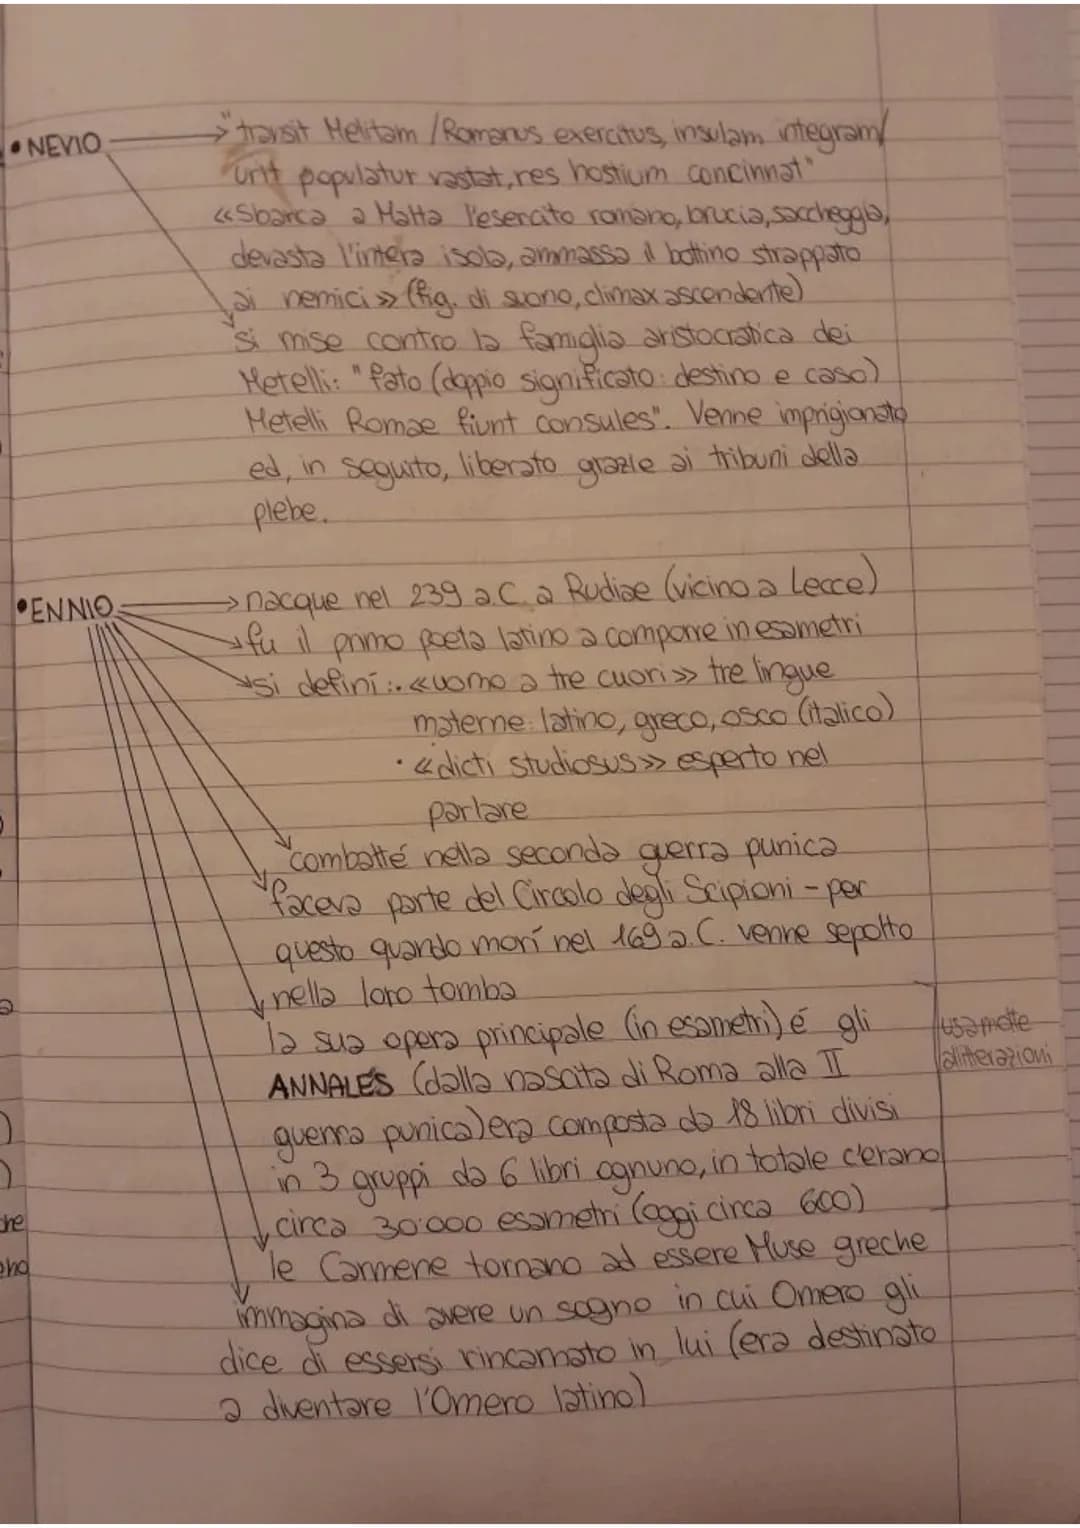 • NEVIO → "transit Melitam / Romanus exercitus, insulam integram/
urit populatur vastat, res hostium concinnat"
«Sbarca a Malta l'esercito romano, brucia, saccheggia,
devasta l'intera isola, ammassa il bottino strappato
ai nemici» (fig. di suono, climax ascendente)
si mise contro la famiglia aristocratica dei
Metelli: "fato (doppio significato: destino e caso)
Metelli Romae fiunt consules". Venne imprigionato
ed, in seguito, liberato grazie ai tribuni della
plebe.
• ENNIO → nacque nel 239 a.C. a Rudiae (vicino a Lecce)
fu il primo poeta latino a comporre in esametri
si definì: • «uomo a tre cuori» tre lingue
materne: latino, greco, osco (italico)
• «dicti studiosus» esperto nel
parlare
combatté nella seconda guerra punica
faceva parte del Circolo degli Scipioni - per
questo quando morí nel 169 a.C. venne sepolto
nella loro tomba
la sua opera principale (in esametri) é gli
ANNALES (dalla nascita di Roma alla II
guerra punica) era composta da 18 libri divisi
in 3 gruppi da 6 libri ognuno, in totale c'erano
circa 30'000 esametri (oggi circa 600)
usa molte
allitterazioni
le Camene tornano ad essere Muse greche
immagina di avere un sogno in cui Omero gli
dice di essersi rincarnato in lui (era destinato
a diventare l'Omero latino)